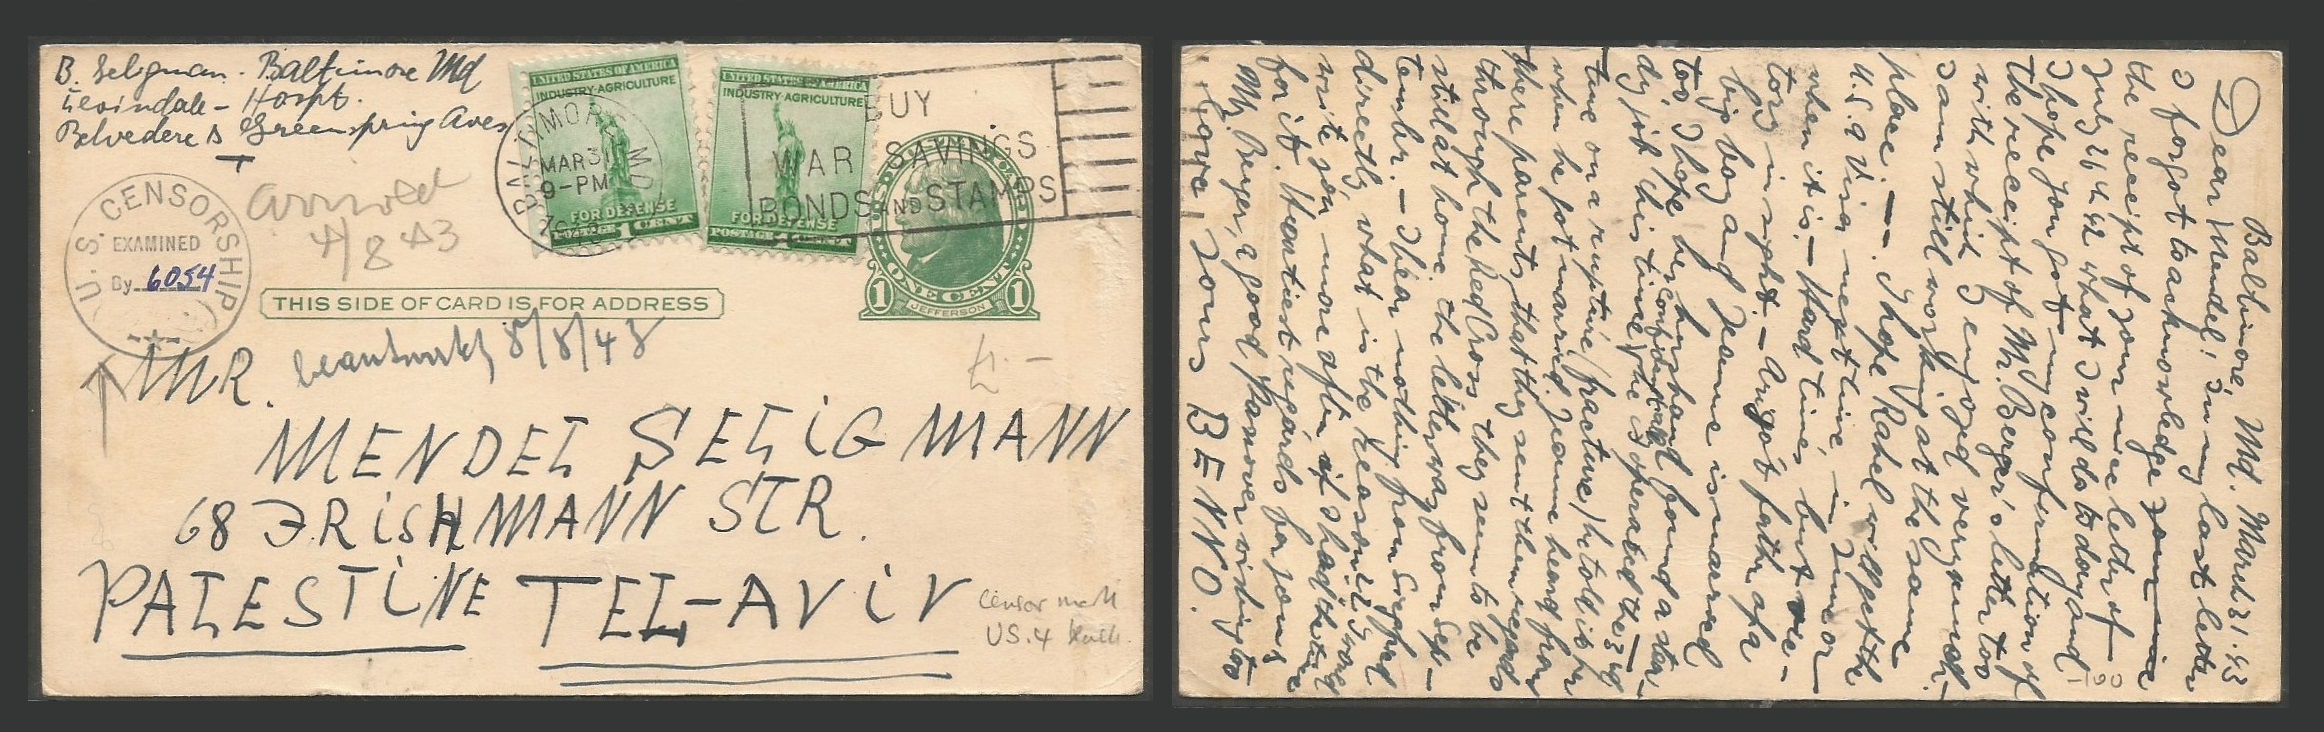 B. Seligman. Baltimore Md
Levindale - Hospt.
Belvedere & Greenspring Aves
U.S. CENSORSHIP
EXAMINED
By 6054
arrived
4/8 43
BALTIMORE MD
MAR 31
9-PM
UNITED STATES OF AMERICA
INDUSTRY-AGRICULTURE
FOR DEFENSE
POSTAGE 1 CENT
UNITED STATES OF AMERICA
INDUSTRY AGRICULTURE
FOR DEFENSE
POSTAGE 1 CENT
BUY
WAR SAVINGS
BONDS AND STAMPS
1 ONE CENT 1
JEFFERSON
THIS SIDE OF CARD IS FOR ADDRESS
MR. 8/8/43
MENDEL SELIGMANN
68 FRISHMANN STR.
PALESTINE TEL-AVIV
censor mark
US.4
Baltimore, Md. March 31.43
Dear Mendel: In my last letter
I forgot to acknowledge
the receipt of your nice letter of
July 26th 42 what I will do today and
I hope you got my confirmation of
the receipt of Mr. Berger's letter too
with whit I enjoyed very much.
I am still working at the same
place. - I hope Rahel will get the
U.S.A Visa next time, in
when it is. - Hard times but
tory in sight. - father of a
big boy and Jeanne is married
too, I hope her husband found a stea-
dy job this time (he confidentially
time on a rupture/fracture/he told is for
when he got married. Jeanne heard from
there parents, that they sent them regards
through the Red Cross they seem to be
still at home. the letter was from Sep-
tember. - I hear nothing from Siegfried
directly, what is the reason? I would
write you more often if I had the time
for it. Heartiest regards for you
Mr. Berger, a good Passover wishing to
Love Yours BENNO.